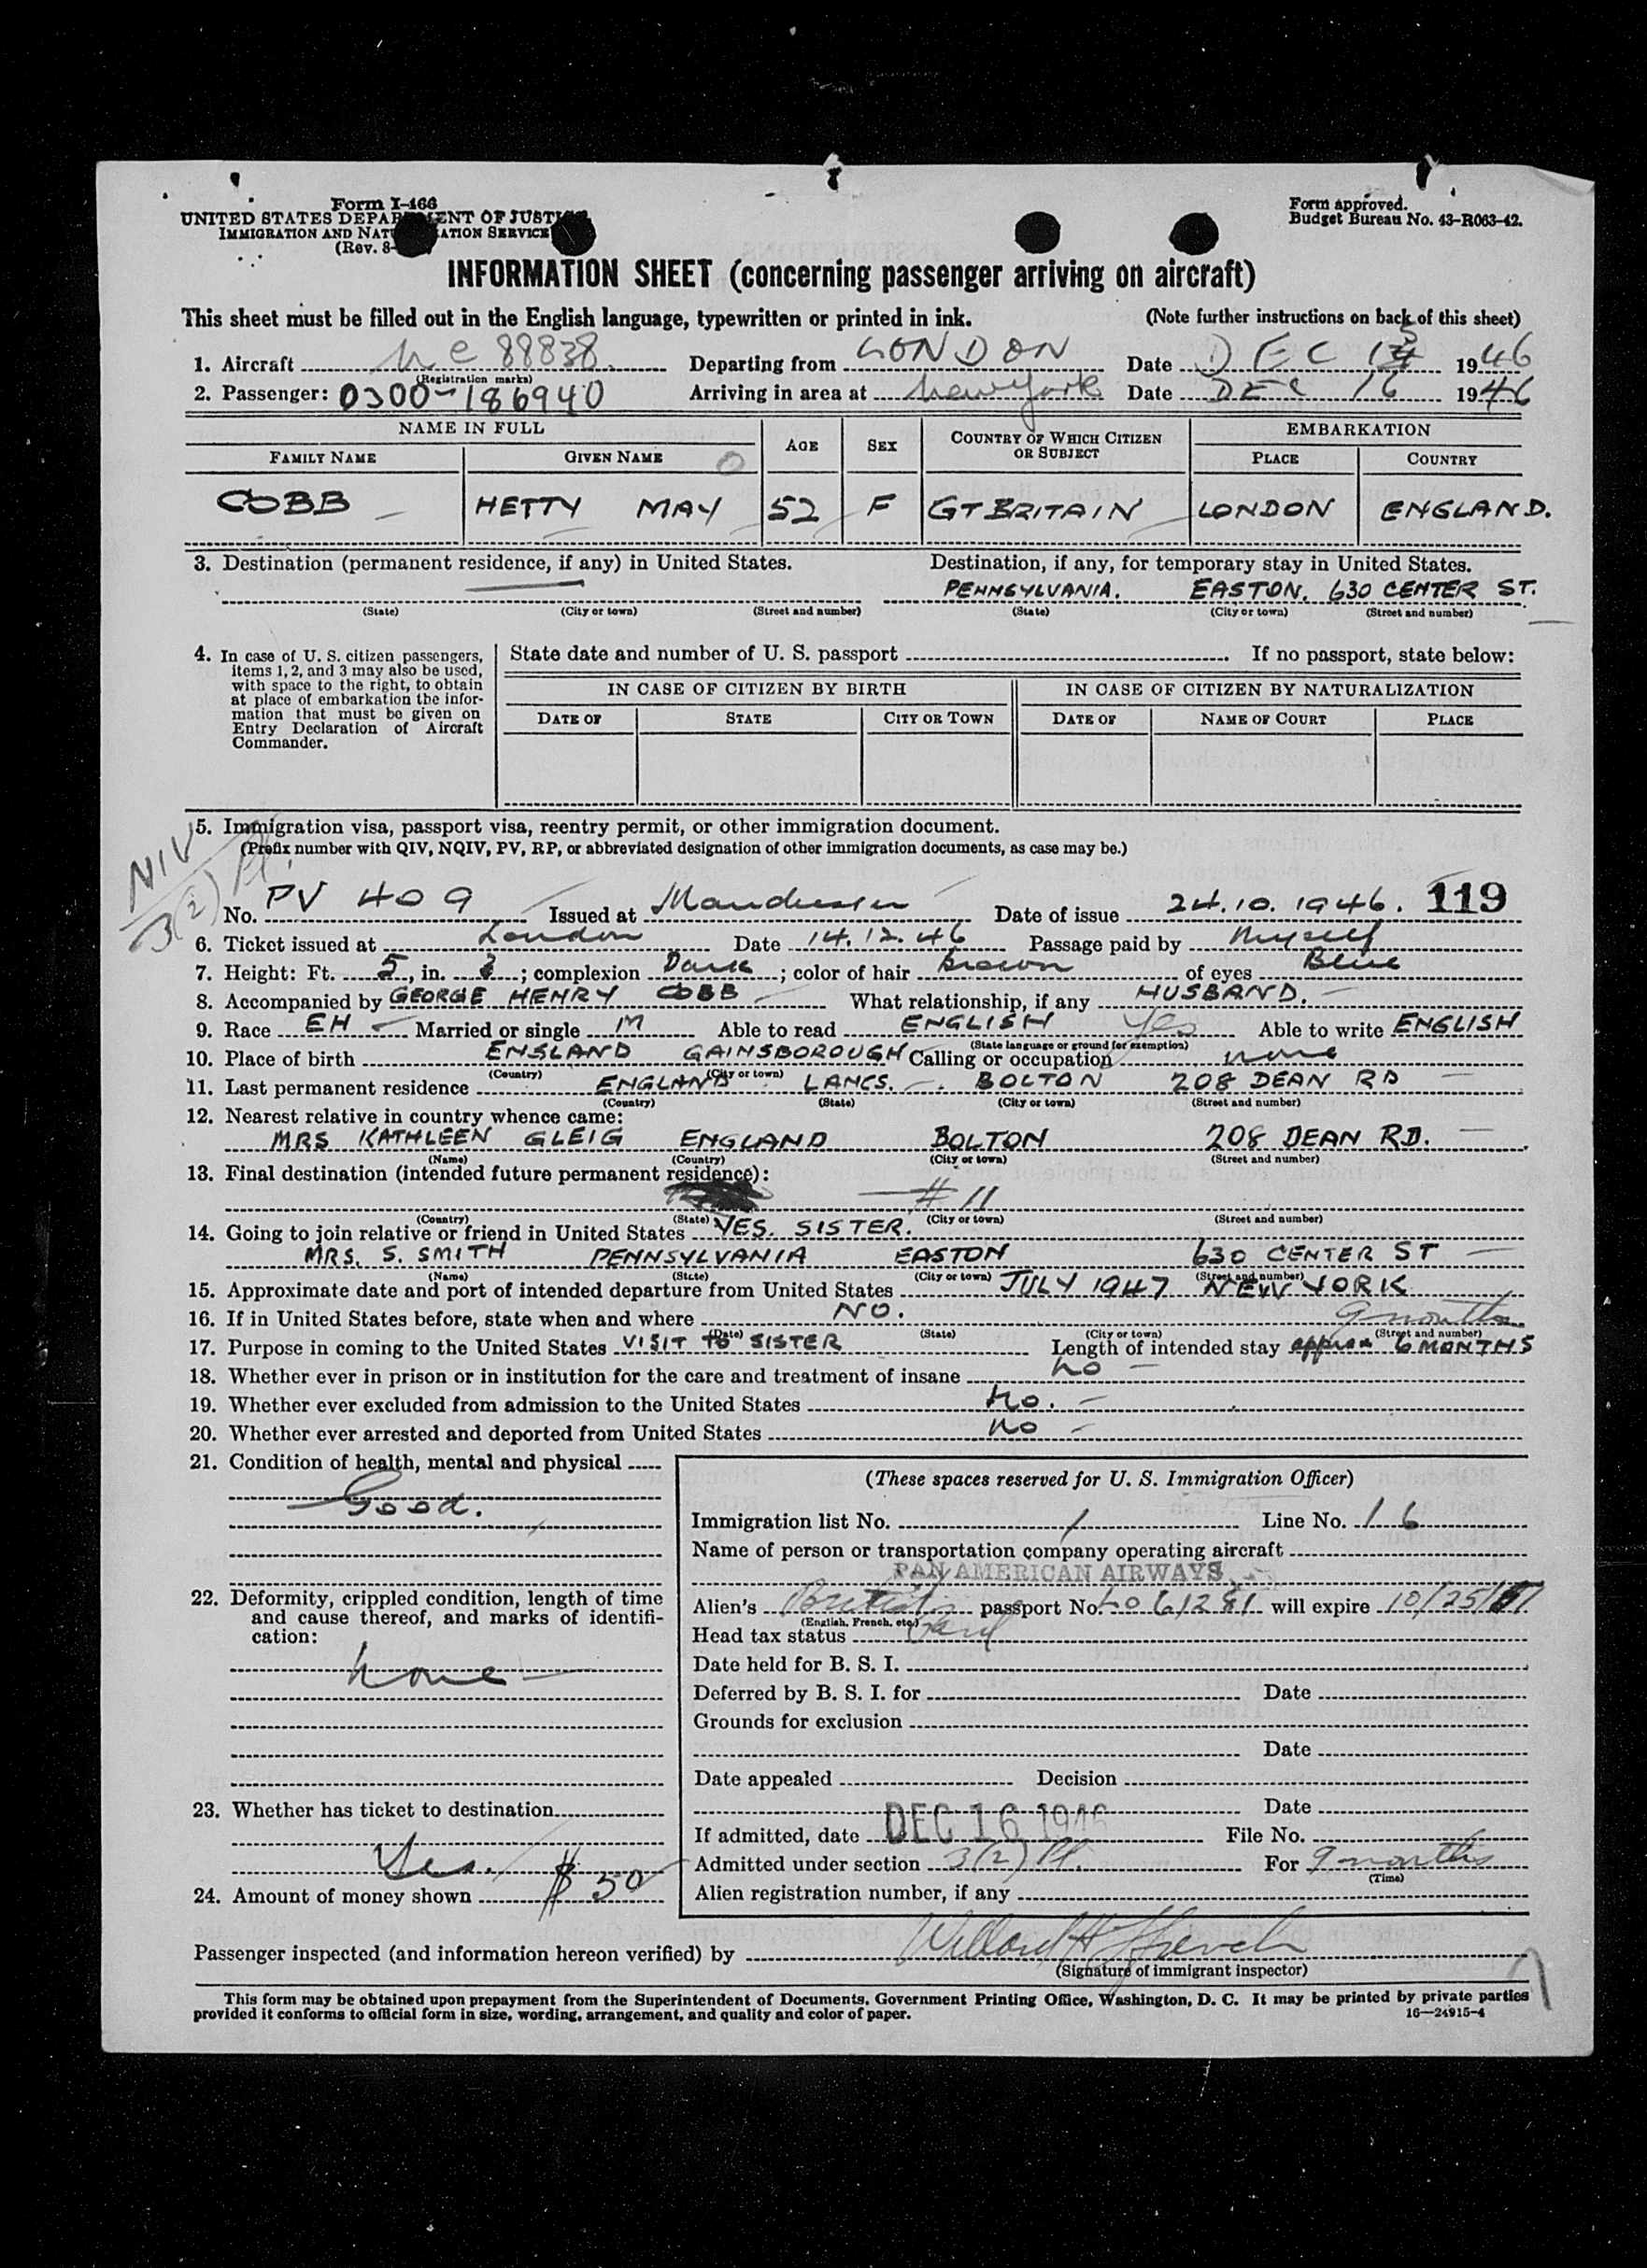 Form I-466
UNITED STATES DEPARTMENT OF JUSTICE
IMMIGRATION AND NATURALIZATION SERVICE
(Rev. 8-
Form approved.
Budget Bureau No. 43-R063-42.
INFORMATION SHEET (concerning passenger arriving on aircraft)
This sheet must be filled out in the English language, typewritten or printed in ink. (Note further instructions on back of this sheet)
1. Aircraft NC 88838 Departing from LONDON Date DEC 1946
(Registration marks)
2. Passenger: 0300-186940 Arriving in area at New York Date DEC 16 1946
NAME IN FULL AGE SEX COUNTRY OF WHICH CITIZEN OR SUBJECT EMBARKATION
FAMILY NAME GIVEN NAME PLACE COUNTRY
COBB HETTY MAY 52 F GT BRITAIN LONDON ENGLAND.
3. Destination (permanent residence, if any) in United States. Destination, if any, for temporary stay in United States.
PENNSYLVANIA. EASTON. 630 CENTER ST.
(State) (City or town) (Street and number) (State) (City or town) (Street and number)
4. In case of U. S. citizen passengers, items 1, 2, and 3 may also be used, with space to the right, to obtain at place of embarkation the information that must be given on Entry Declaration of Aircraft Commander.
State date and number of U. S. passport If no passport, state below:
IN CASE OF CITIZEN BY BIRTH IN CASE OF CITIZEN BY NATURALIZATION
DATE OF STATE CITY OR TOWN DATE OF NAME OF COURT PLACE
NIV
3(2) Pl.
5. Immigration visa, passport visa, reentry permit, or other immigration document.
(Prefix number with QIV, NQIV, PV, RP, or abbreviated designation of other immigration documents, as case may be.)
No. PV 409 Issued at Manchester Date of issue 24.10.1946. 119
6. Ticket issued at London Date 14.12.46 Passage paid by Myself
7. Height: Ft. 5, in. ; complexion Dark; color of hair Brown of eyes Blue
8. Accompanied by GEORGE HENRY COBB What relationship, if any HUSBAND.
9. Race EH Married or single M Able to read ENGLISH Yes Able to write ENGLISH
(State language or ground for exemption)
10. Place of birth ENGLAND GAINSBOROUGH Calling or occupation none
(Country) (City or town)
11. Last permanent residence ENGLAND LANCS. BOLTON 208 DEAN RD
(Country) (State) (City or town) (Street and number)
12. Nearest relative in country whence came:
MRS KATHLEEN GLEIG ENGLAND BOLTON 208 DEAN RD.
(Name) (Country) (City or town) (Street and number)
13. Final destination (intended future permanent residence):
# 11
(Country) (State) (City or town) (Street and number)
14. Going to join relative or friend in United States YES. SISTER.
MRS. S. SMITH PENNSYLVANIA EASTON 630 CENTER ST
(Name) (State) (City or town) (Street and number)
15. Approximate date and port of intended departure from United States JULY 1947 NEW YORK
16. If in United States before, state when and where NO. 9 months
(Date) (State) (City or town) (Street and number)
17. Purpose in coming to the United States VISIT TO SISTER Length of intended stay approx 6 MONTHS
18. Whether ever in prison or in institution for the care and treatment of insane no
19. Whether ever excluded from admission to the United States No.
20. Whether ever arrested and deported from United States No
21. Condition of health, mental and physical
Good.
22. Deformity, crippled condition, length of time and cause thereof, and marks of identification:
None
23. Whether has ticket to destination
Yes.
24. Amount of money shown $ 50
(These spaces reserved for U. S. Immigration Officer)
Immigration list No. 1 Line No. 16
Name of person or transportation company operating aircraft
PAN AMERICAN AIRWAYS
Alien's British passport No. L061281 will expire 10/25/
(English, French, etc.)
Head tax status
Date held for B. S. I.
Deferred by B. S. I. for Date
Grounds for exclusion
Date
Date appealed Decision
Date
If admitted, date DEC 16 1946 File No.
Admitted under section 3(2) Pl. For 9 months
(Time)
Alien registration number, if any
Passenger inspected (and information hereon verified) by
(Signature of immigrant inspector)
This form may be obtained upon prepayment from the Superintendent of Documents, Government Printing Office, Washington, D. C. It may be printed by private parties
provided it conforms to official form in size, wording, arrangement, and quality and color of paper. 16—24915-4